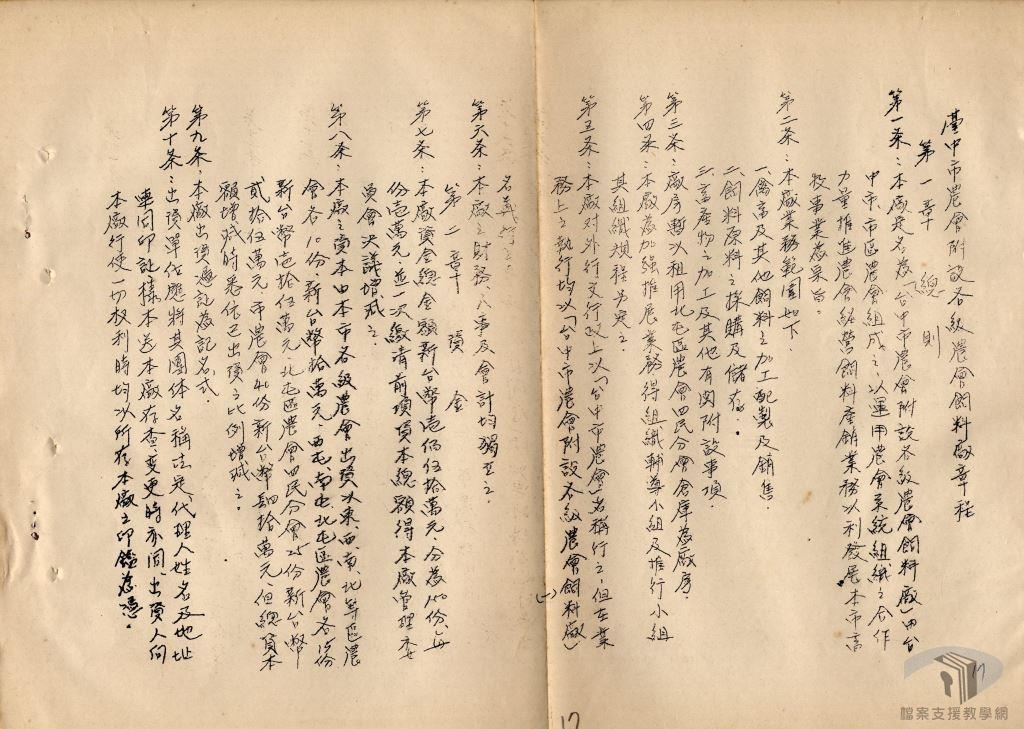 臺中市農會附設各級農會飼料廠章程
第一章 總則
第一条：本廠定名為「台中市農會附設各級農會飼料廠」由台
中市市區農會組成之、以運用農會系統組織之合作
力量推進農會經營飼料產銷業務以利發展本市畜
牧事業為宗旨。
第二条：本廠業務範圍如下、
一、禽畜及其他飼料之加工配製及銷售
二、飼料原料之採購及儲存。
三、畜產物之加工及其他有関附設事項、
第三条：廠房暫以租用北屯區農會四民分會倉庫為廠房。
第四条：本廠為加強推展業務得組織輔導小組及推行小組
其組織規程另定之。
第五条：本廠对外行文行政上以「台中市農會」名稱行之、但在業
務上之執行均以「台中市農會附設各級農會飼料廠」
(一)
名義行之。
第六条：本廠之財務人事及會計均獨立之、
第二章 資金
第七条：本廠資金總金額新台幣壱佰伍拾萬元、分為150份、每
份壱萬元、並一次繳清前項資本總額得本廠管理委
員會決議增減之、
第八条：本廠之資本由本市各級農會出資以東、西、南、北等區農
會各10份、新台幣拾萬元、西屯、南屯、北屯區農會各15份
新台幣壱拾伍萬元、北屯區農會四民分會25份新台幣
貳拾伍萬元、市農會40份新台幣肆拾萬元、但總資本
額增減時悉依已出資之比例增減之、
第九条：本廠出資憑証為記名式。
第十条：出資單位應將其團体名稱法定代理人姓名及地址
連同印証樣本送本廠存查、變更時亦同、出資人向
本廠行使一切权利時均以所存本廠之印鑑為憑。
17
17
檔案支援教學網